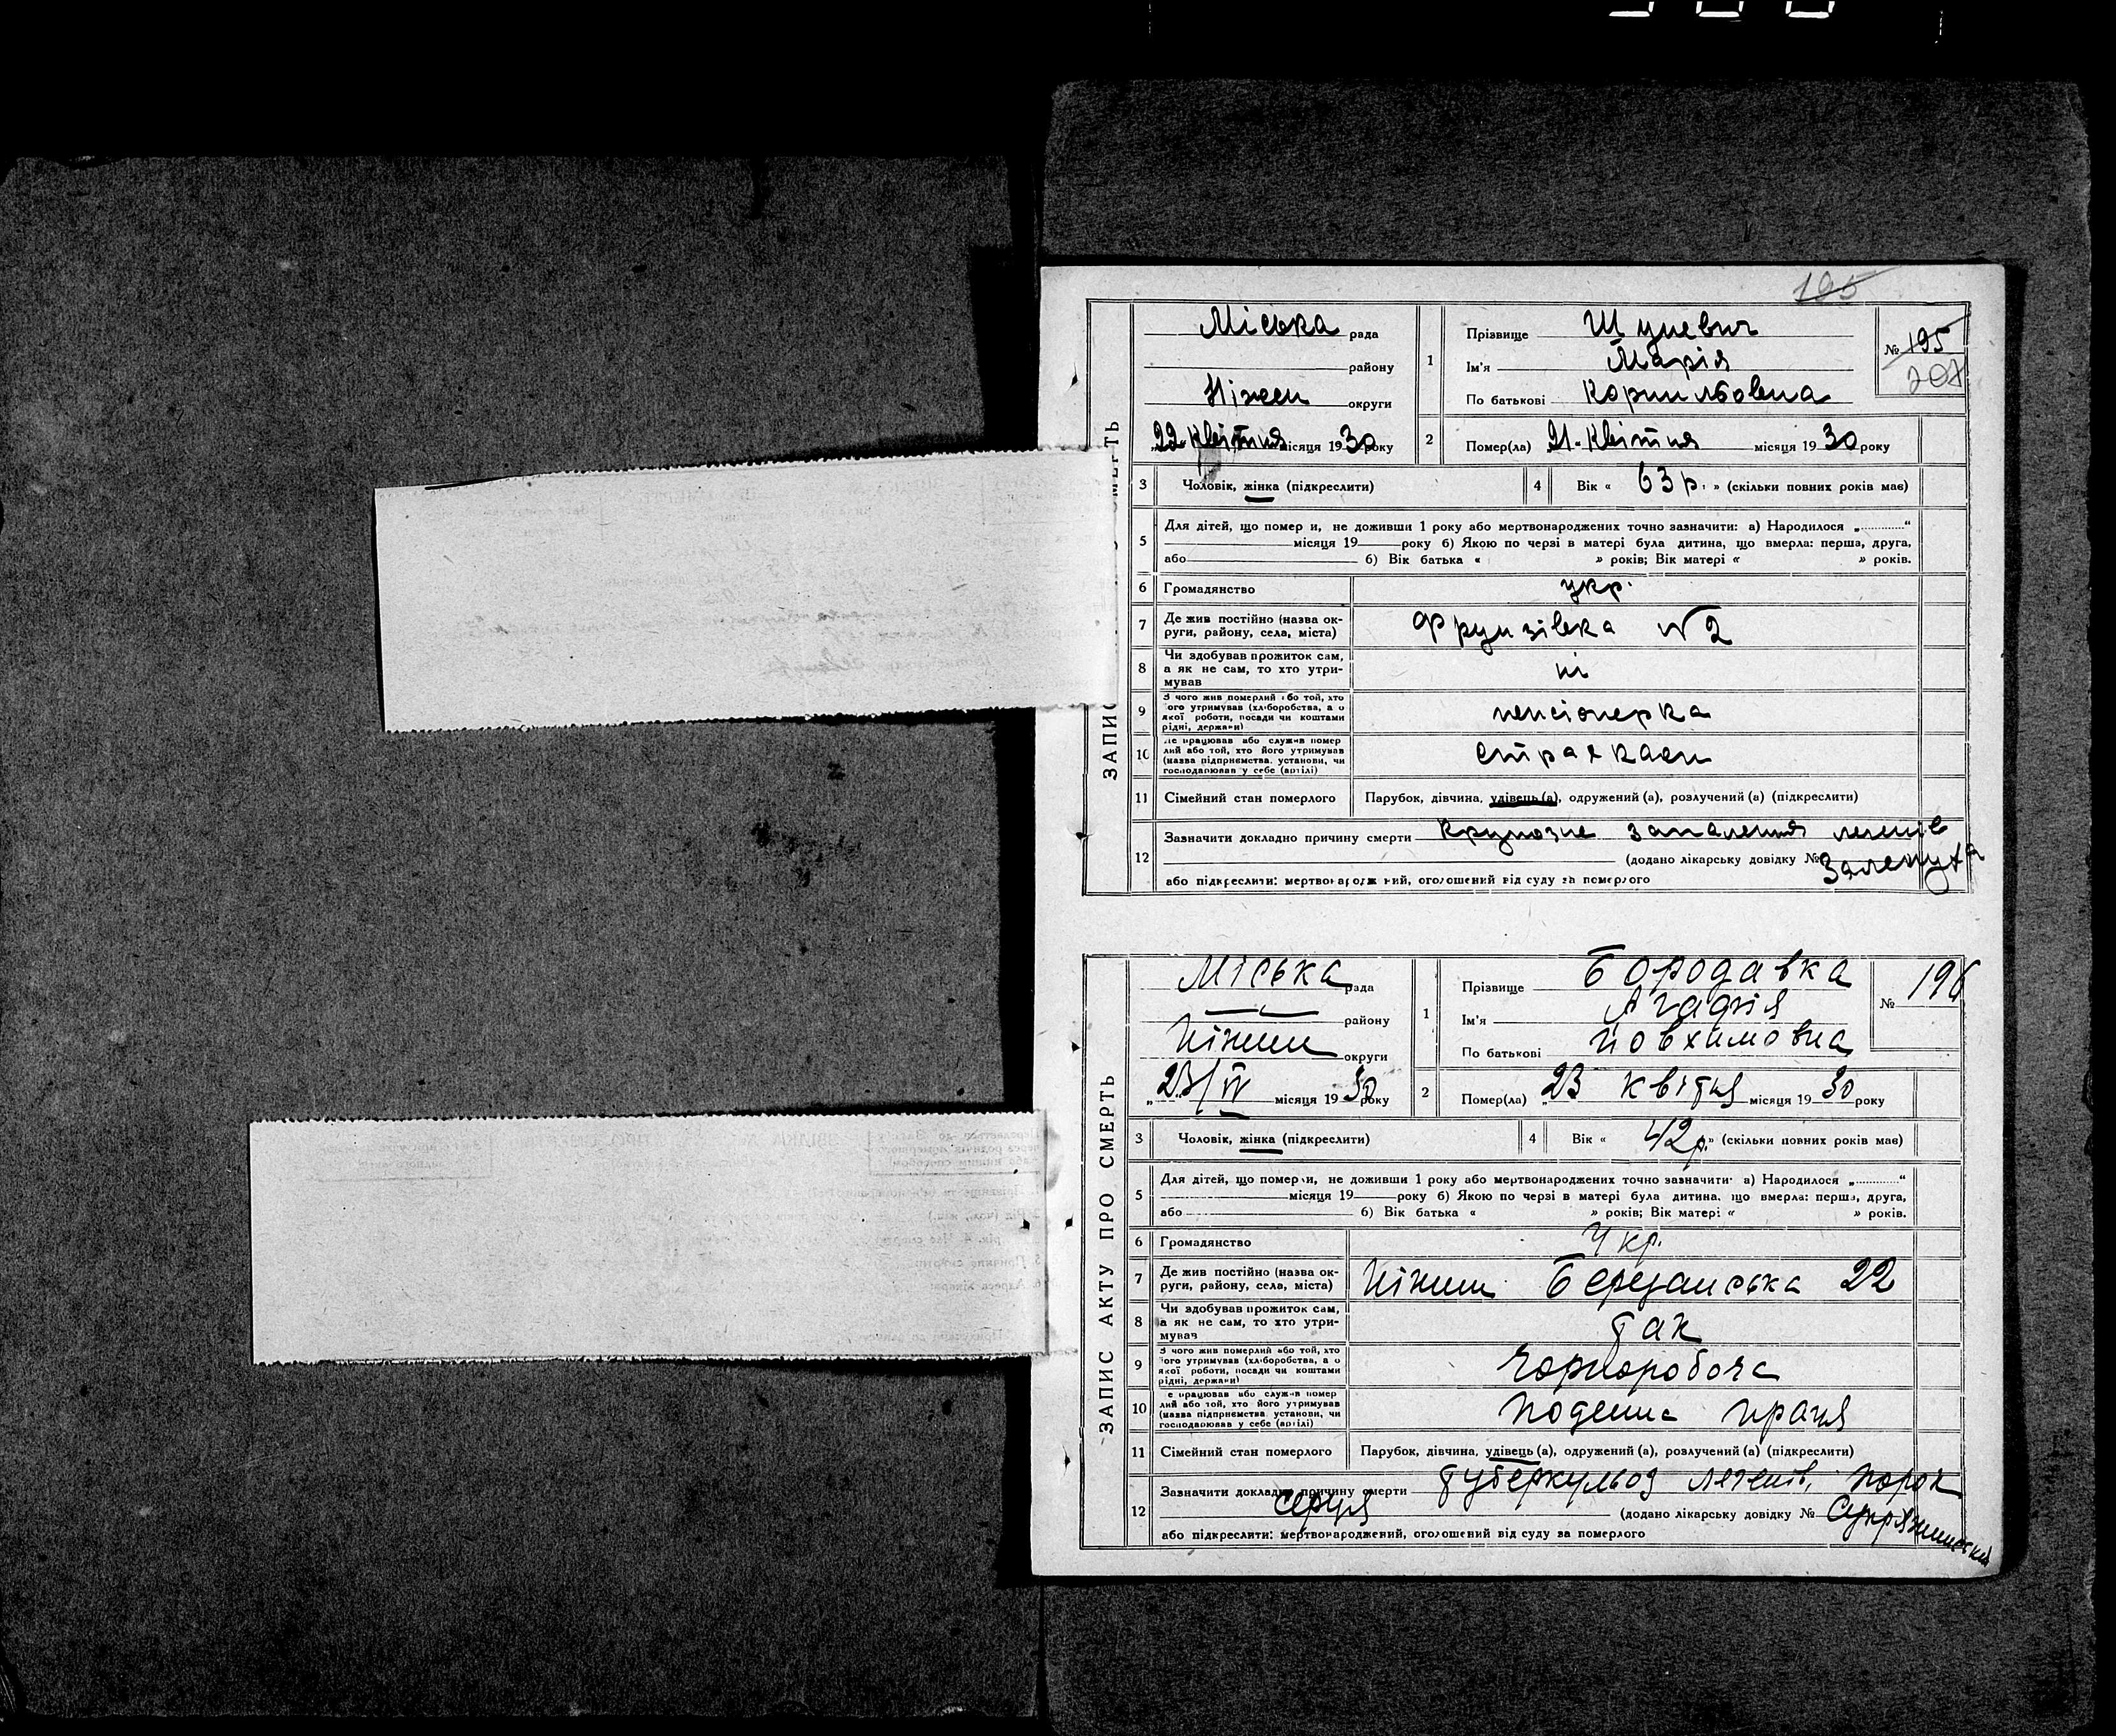 195
ЗАПИС
Міська рада
району
Ніжен округи
22 квітня місяця 1930 року
1
Прізвище Шуневич
Ім'я Марія
По батькові Корнильовна
№ 195
207
2 Помер(ла) 21 квітня місяця 1930 року
3 Чоловік, жінка (підкреслити)
4 Вік « 63 р. » (скільки повних років має)
5 Для дітей, що помер и, не доживши 1 року або мертвонароджених точно зазначити: а) Народилося „............“
місяця 19 року б) Якою по черзі в матері була дитина, що вмерла: перша, друга,
або б) Вік батька « » років; Вік матері « » років.
6 Громадянство укр.
7 Де жив постійно (назва ок-
руги, району, села, міста) Фрунзівка № 2
8 Чи здобував прожиток сам,
а як не сам, то хто утри-
мував ні
9 З чого жив померлий або той, хто
ого утримував (хліборобства, а о
якої роботи, посади чи коштами
рідні, держави) пенсіонерка
10 де працював або служив помер
лий або той, хто його утримував
(назва підприємства, установи, чи
господарював у себе (артілі) страхкаси
11 Сімейний стан померлого Парубок, дівчина, удівець (а), одружений (а), розлучений (а) (підкреслити)
12 Зазначити докладно причину смерти Крупозне запалення легенів
(додано лікарську довідку № Залепуха
або підкреслити: мертвонароджений, оголошений від суду за померлого
ЗАПИС АКТУ ПРО СМЕРТЬ
Міська рада
району
Ніжин округи
„23/IV місяця 1930 року
1
Прізвище Бородавка
Ім'я Агафія
По батькові Йовхимовна
№ 196
2 Помер(ла) „23 квітня місяця 1930 року
3 Чоловік, жінка (підкреслити)
4 Вік « 42 р.» (скільки повних років має)
5 Для дітей, що померли, не доживши 1 року або мертвонароджених точно зазначити: а) Народилося „............“
місяця 19 року б) Якою по черзі в матері була дитина, що вмерла: перша, друга,
або б) Вік батька « » років; Вік матері « » років.
6 Громадянство Укр.
7 Де жив постійно (назва ок-
руги, району, села, міста) Ніжин Березанська 22
8 Чи здобував прожиток сам,
а як не сам, то хто утри-
мував так
9 З чого жив померлий або той, хто
ого утримував (хліборобства, а о
якої роботи, посади чи коштами
рідні, держави) Чорноробоча
10 е працював або служив помер
лий або той, хто його утримував
(назва підприємства, установи, чи
господарював у себе (артілі) Поденна прачя
11 Сімейний стан померлого Парубок, дівчина, удівець (а), одружений (а), розлучений (а) (підкреслити)
12 Зазначити докладно причину смерти туберкульоз легенів, порок
серця (додано лікарську довідку №
або підкреслити: мертвонароджений, оголошений від суду за померлого